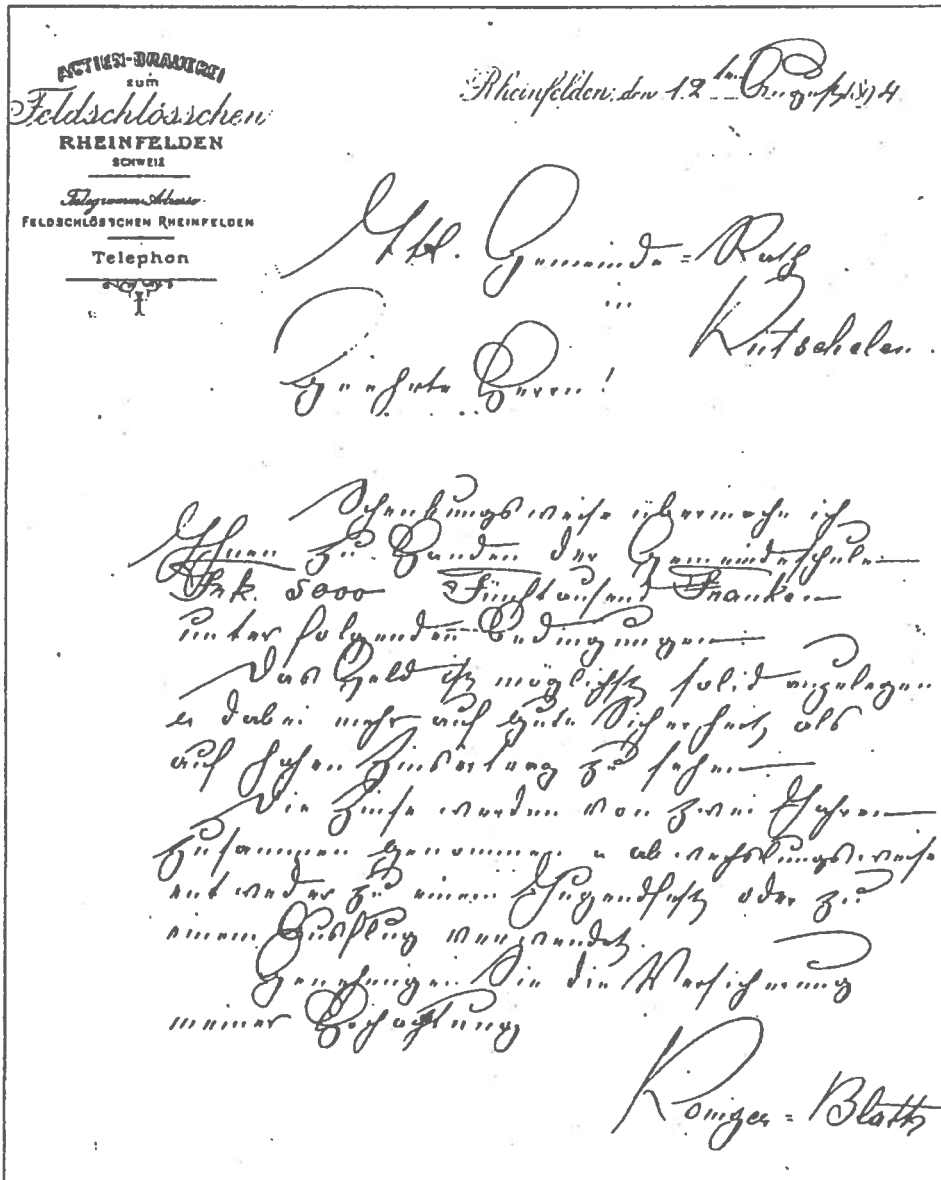 ACTIEN-BRAUEREI
zum
Feldschlösschen
RHEINFELDEN
SCHWEIZ
Telegramm-Adresse
FELDSCHLÖSSCHEN RHEINFELDEN
Telephon
Rheinfelden, den 12ten August 1894
Gemeinde=Rath
in
Rütschelen.
Geehrte Herren!
Schenkungsweise übermache ich
Ihnen zu Handen der Gemeindeschule
Frk. 5000 Fünftausend Franken
unter folgenden Bedingungen
Das Geld ist möglichst solid anzulegen
u dabei mehr auf gute Sicherheit, als
auf hohen Zinsertrag zu sehen
Die Zinse werden von zwei Jahren
zusammen genommen u abwechslungsweise
entweder zu einem Jugendfest, oder zu
einem Ausflug verwendet.
Genehmigen Sie die Versicherung
meiner Hochachtung
Roniger=Blatt